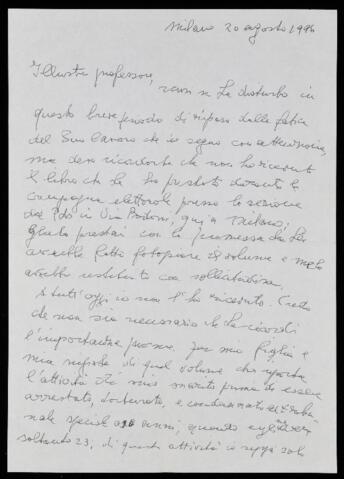 Milano 20 agosto 1996
Illustre professore,
scusi se La disturbo in
questo breve periodo di riposo dalla fatica
del Suo lavoro che io seguo con attenzione,
ma devo ricordarLe che non ho ricevuto
il libro che Le ho prestato durante la
campagna elettorale presso la sezione
del Pds in Via qui a Milano;
Glielo prestai con la promessa che Lei
avrebbe fatto fotopiare il volume e me lo
avrebbe restituito con sollecitudine.
A tutt'oggi io non l'ho ricevuto. Credo
che non sia necessario che Le ricordi
l'importanza per me, per mia figlia e
mia nipote di quel volume che riporta
l'attività di mio marito prima di essere
arrestato, torturato, e condannato dal Tribu
nale speciale a anni, quando egli aveva
soltanto 23, di quanta attività io seppi solo